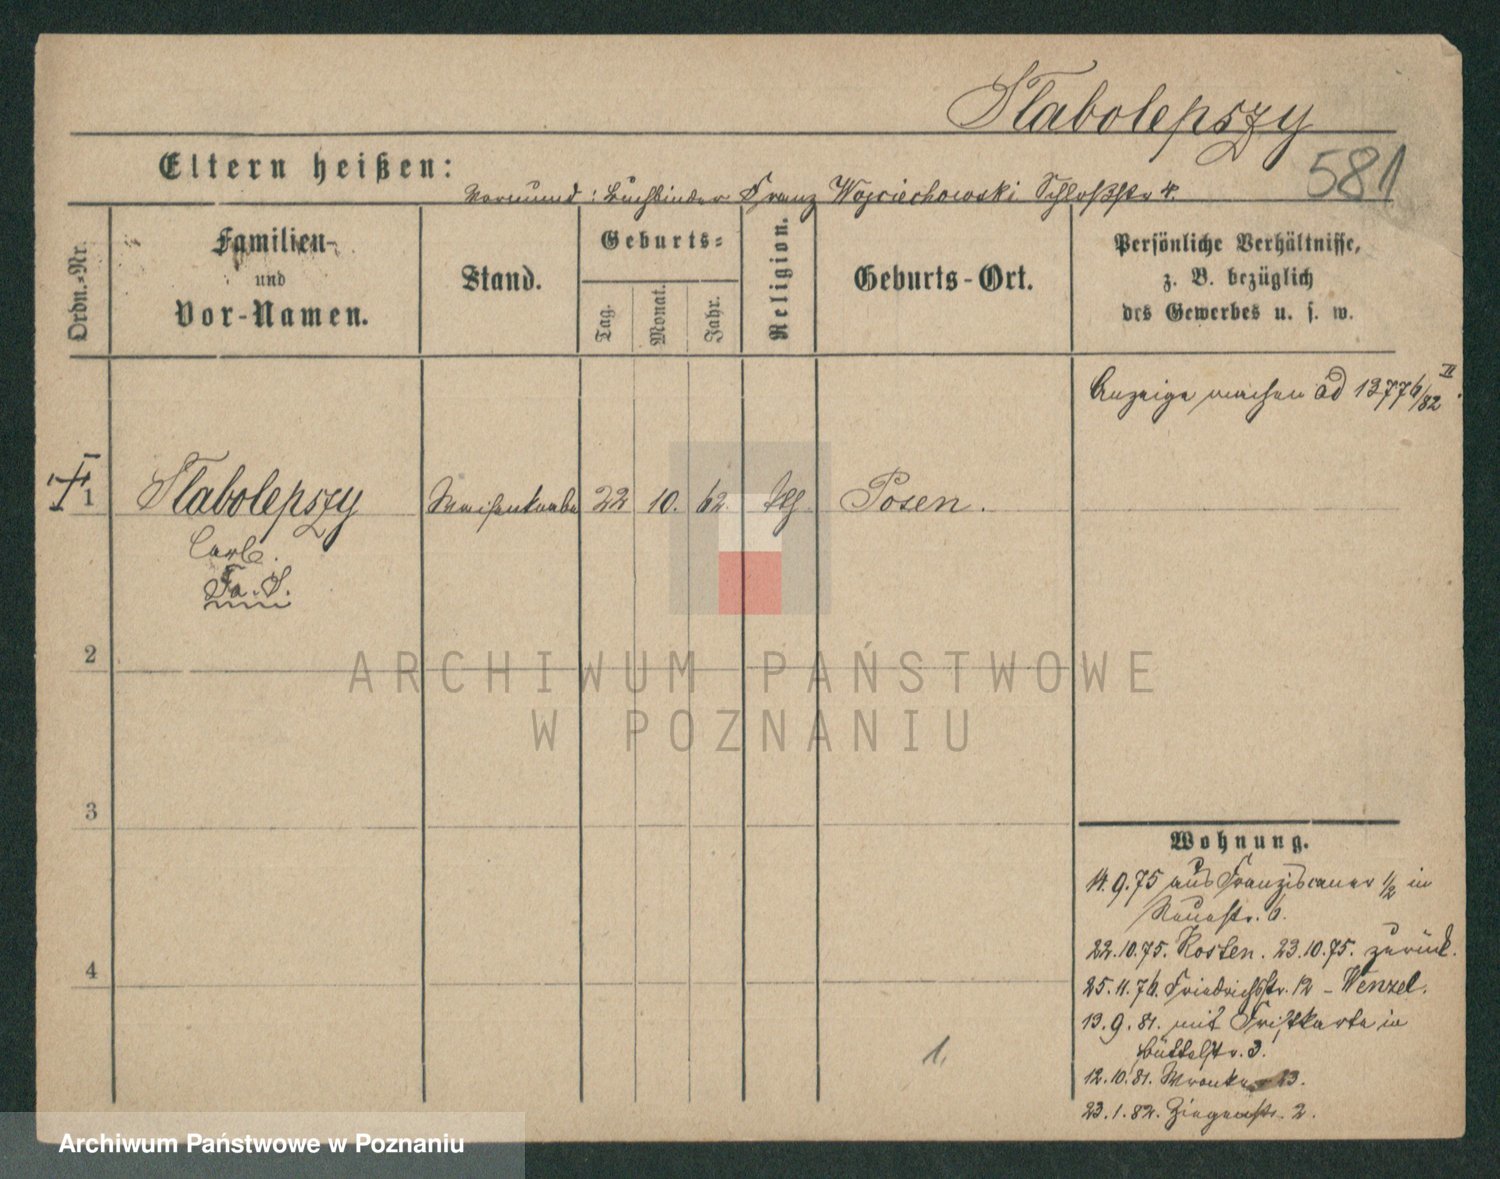 Slabolepszy
581
Eltern heißen:
Vormund: Buchbinder Franz Wojciechowski Schloßstr 4.
Ordn.-Nr.
Familien-
und
Vor-Namen.
Stand.
Geburts-
Tag.
Monat.
Jahr.
Religion.
Geburts-Ort.
Persönliche Verhältnisse,
z. B. bezüglich
des Gewerbes u. s. w.
Anzeige machen ad 13776/82 II.
1 Slabolepszy Waisenknabe 22 10. 62. Posen.
Carl.
Fa. S.
2
ARCHIWUM PAŃSTWOWE
W POZNANIU
3
Wohnung.
14.9.75 aus Franziscaner 1/2 in
Neuestr. 6.
22.10.75. Kosten. 23.10.75. zurück.
4
25.11.76. Friedrichsstr. 12 - Wenzel.
13.9.81. mit Fristkarte in
Büttelstr. 3.
1.
12.10.81. Wronker 23.
23.1.82. Ziegenstr. 2.
Archiwum Państwowe w Poznaniu